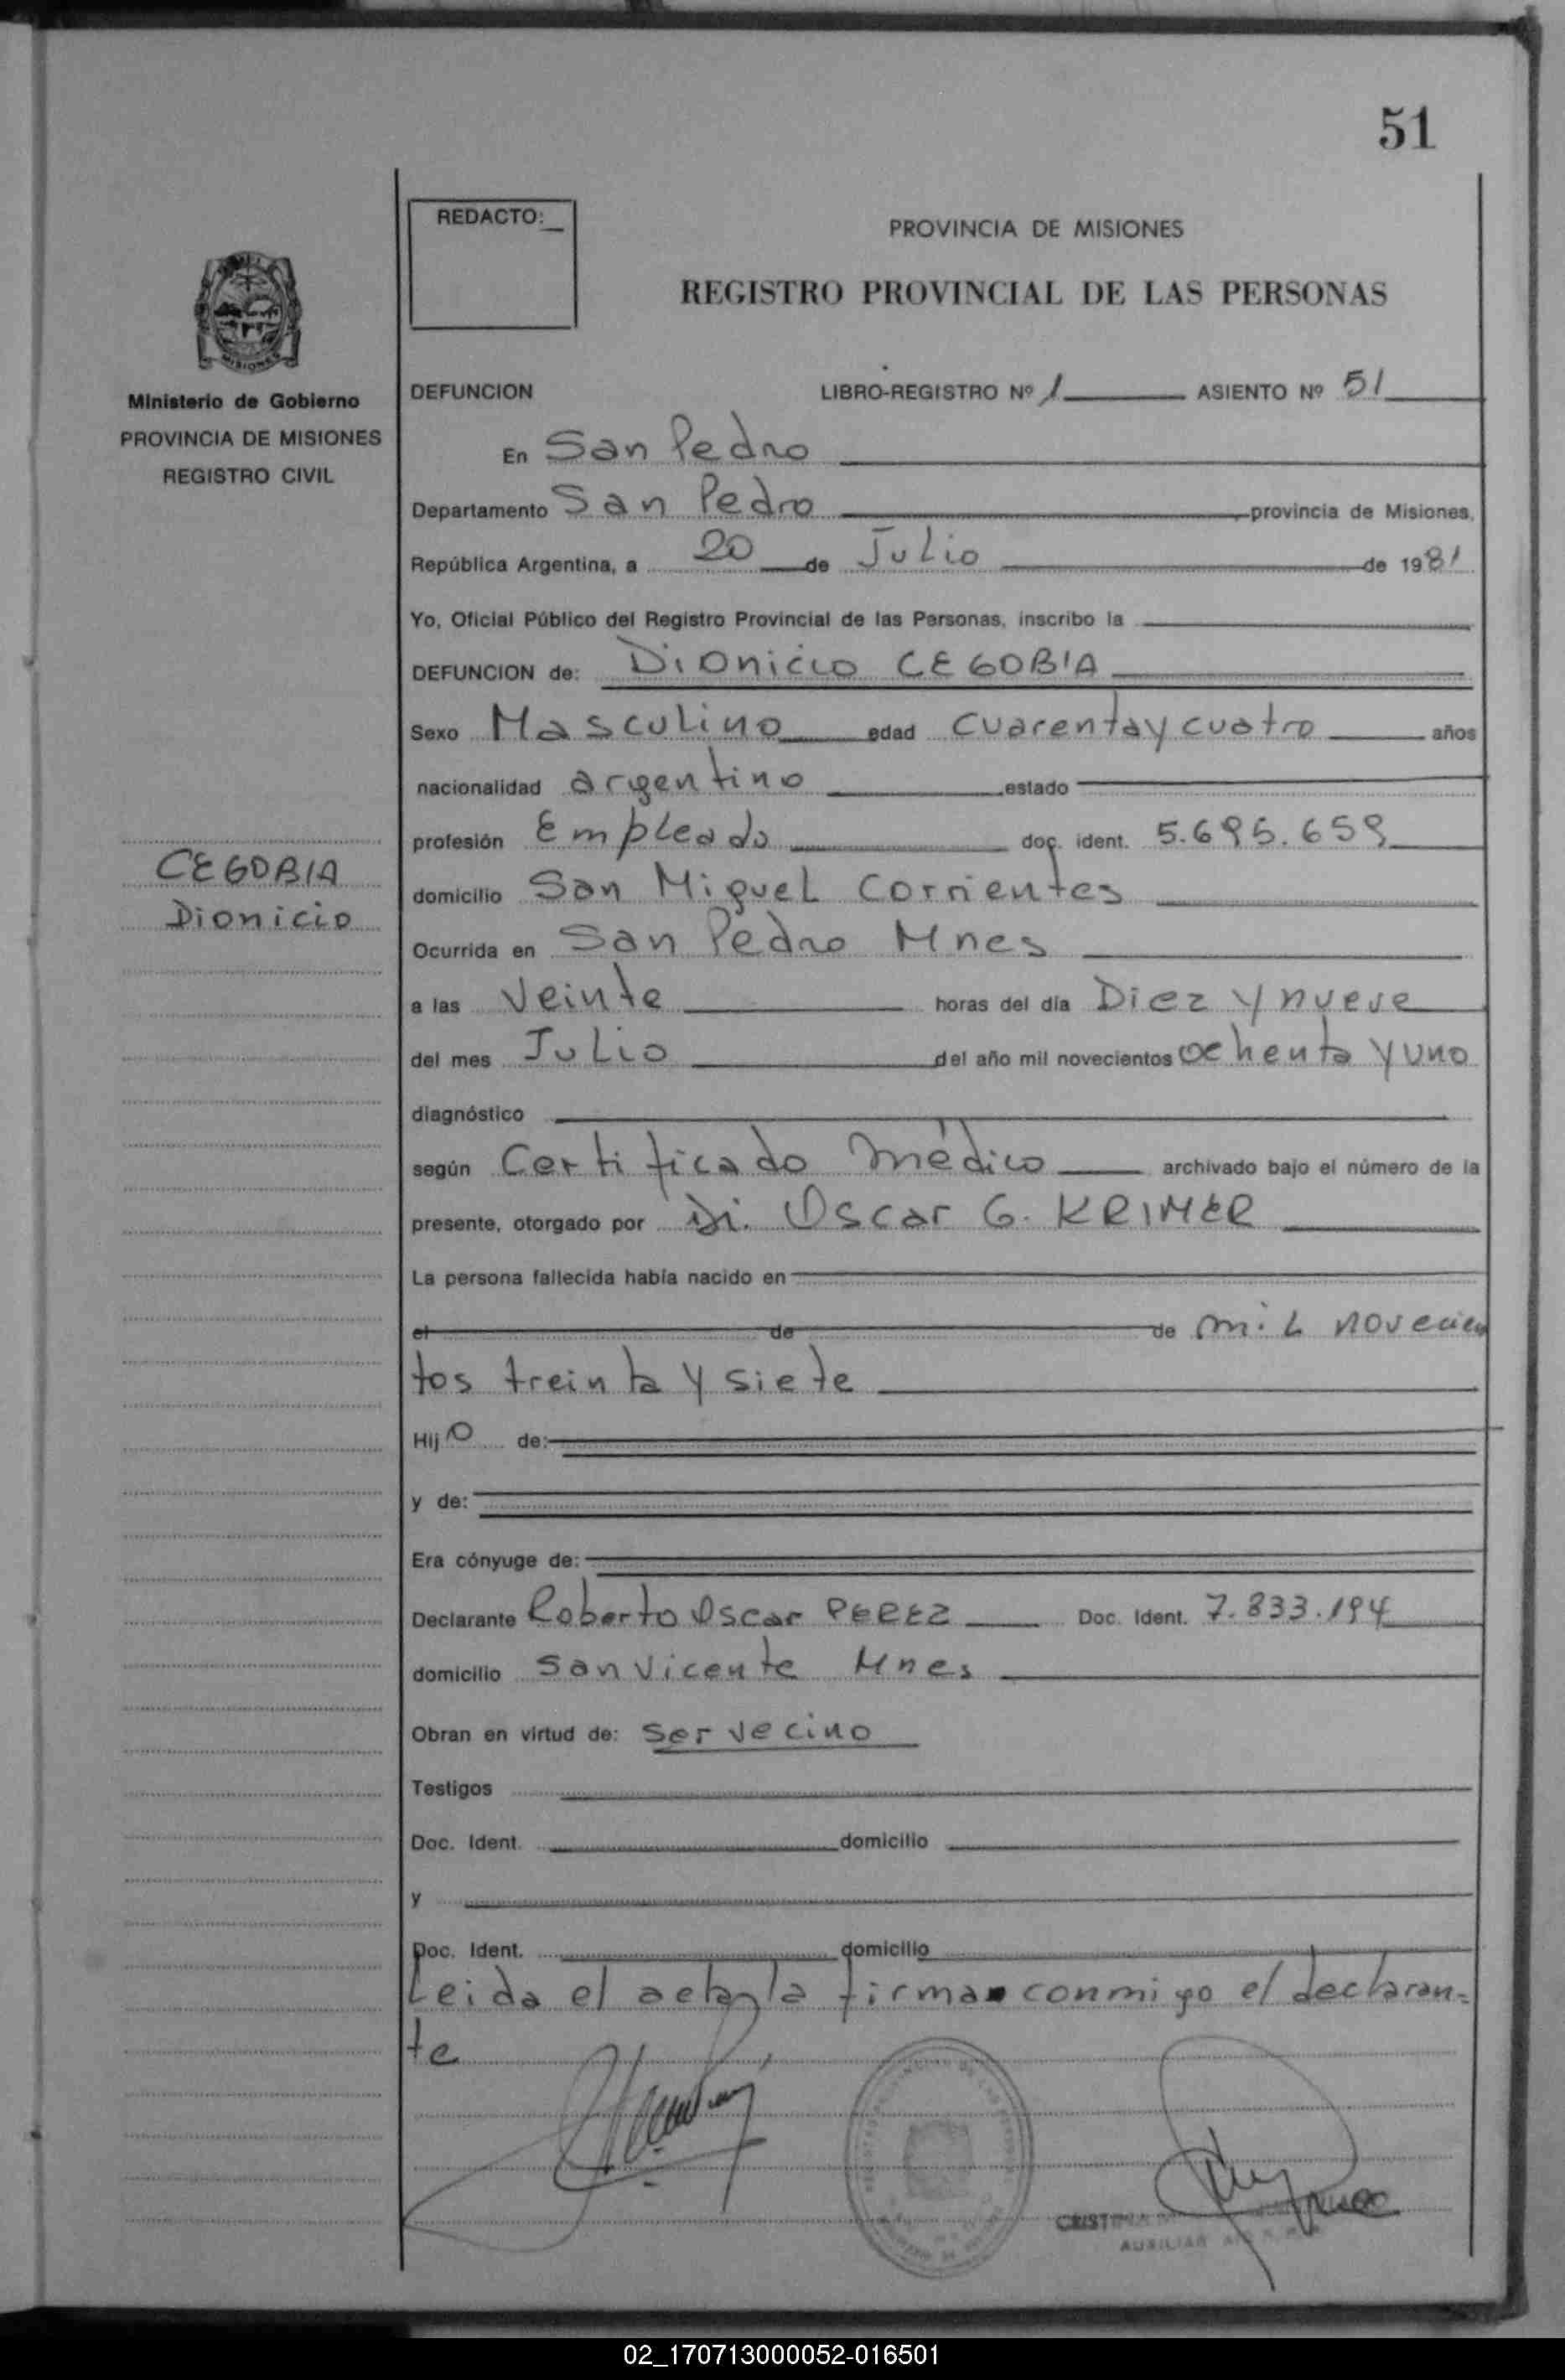 51
REDACTO:
PROVINCIA DE MISIONES
REGISTRO PROVINCIAL DE LAS PERSONAS
MISIONES
Ministerio de Gobierno
PROVINCIA DE MISIONES
REGISTRO CIVIL
CEGOBIA
Dionicio
DEFUNCION LIBRO-REGISTRO Nº 1 ASIENTO Nº 51
En San Pedro
Departamento San Pedro provincia de Misiones,
República Argentina, a 20 de Julio de 1981
Yo, Oficial Público del Registro Provincial de las Personas, inscribo la
DEFUNCION de: Dionicio CEGOBIA
Sexo Masculino edad cuarenta y cuatro años
nacionalidad argentino estado
profesión Empleado doc. ident. 5.695.659
domicilio San Miguel Corrientes
Ocurrida en San Pedro Mnes
a las Veinte horas del día Diez y nueve
del mes Julio del año mil novecientos ochenta y uno
diagnóstico
según Certificado Médico archivado bajo el número de la
presente, otorgado por Dr. Oscar G. KRIMER
La persona fallecida había nacido en
el de de mil novecien
tos treinta y siete
Hijo de:
y de:
Era cónyuge de:
Declarante Roberto Oscar PEREZ Doc. Ident. 7.833.194
domicilio San Vicente Mnes
Obran en virtud de: ser vecino
Testigos
Doc. Ident. domicilio
y
Doc. Ident. domicilio
Leida el acta, la firma conmigo el declaran-
te
AUXILIAR
02_170713000052-016501